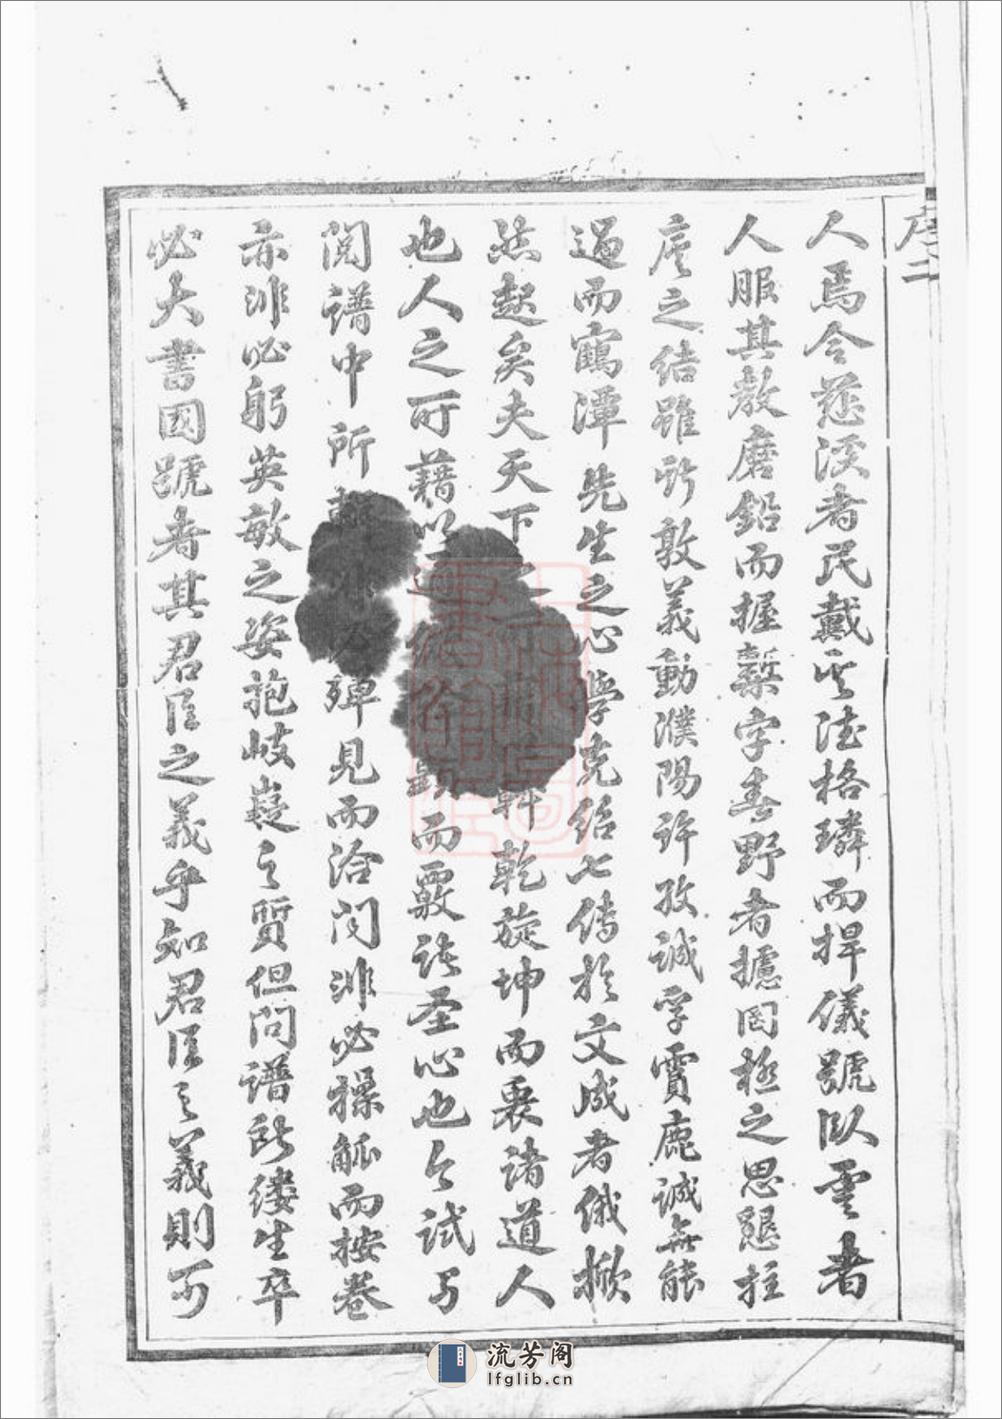 序二
人焉令慈溪者民戴其德格璘而捍儀號臥雲者
人服其教磨鉛而握槧字春野者攄罔極之思懇拄
序之結雖所敦義動濮陽許孜誠孚賈鹿誠無能
過而鶴潭先生之心學克紹七傳於文成者俄掀
然起矣夫天下之 斡乾旋坤而衷諸道人
也人之可藉以 而覈諸聖心也今試與
閱譜中所 殫見而洽聞非必操觚而按卷
亦非必躬英敏之姿抱岐嶷之質但問譜所縷生卒
必大書國號者其君臣之義乎知君臣之義則可
流芳阁
lfglib.cn